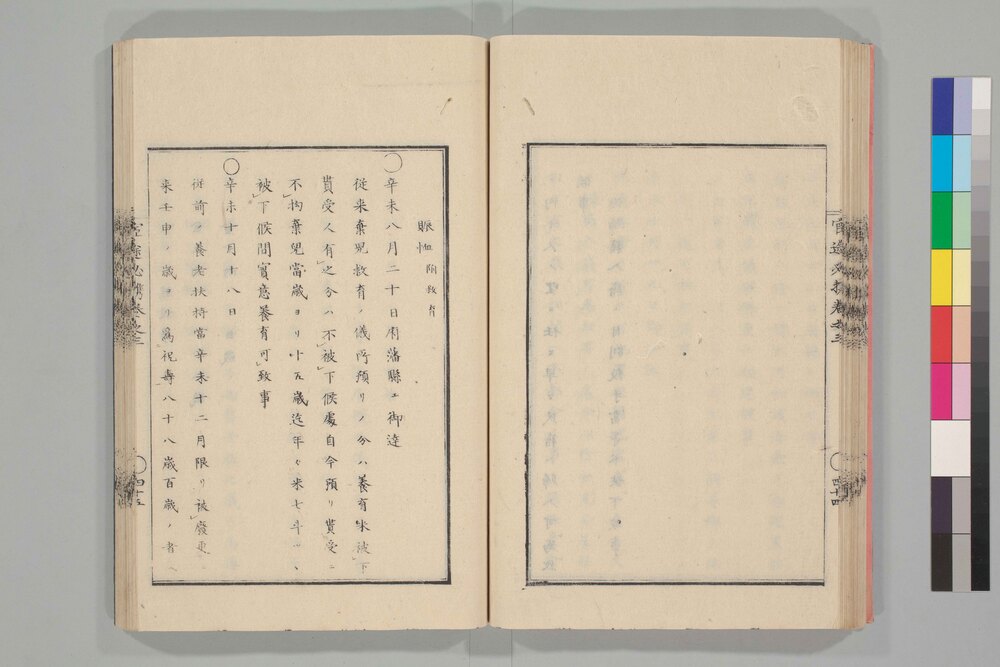 官途必携卷之三
四十四
賑恤 附救育
○辛未八月二十日府藩縣ェ御達
従来棄児救育ノ儀所預リノ分ハ養育米被下
貰受人有之分ハ不被下候處自今預リ貰受ニ
不拘棄児當歳ヨリ十五歳迄年々米七斗ツヽ
被下候間實意養育可致事
○辛未十月十八日
従前ノ養老扶持當辛未十二月限リ被廢更
来壬申ノ歳ヨリ為祝壽八十八歳百歳ノ者ヘ
官途必携卷之三
四十五